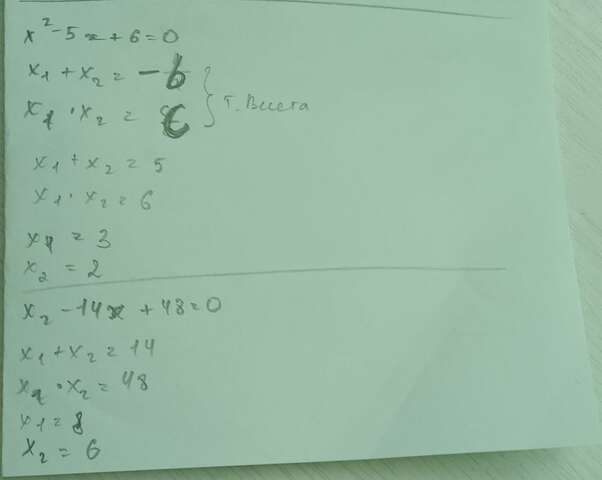 x² - 5x + 6 = 0
x₁ + x₂ = -b
x₁ · x₂ = c
т. Виета
x₁ + x₂ = 5
x₁ · x₂ = 6
x₁ = 3
x₂ = 2
x₂ - 14x + 48 = 0
x₁ + x₂ = 14
x₁ · x₂ = 48
x₁ = 8
x₂ = 6